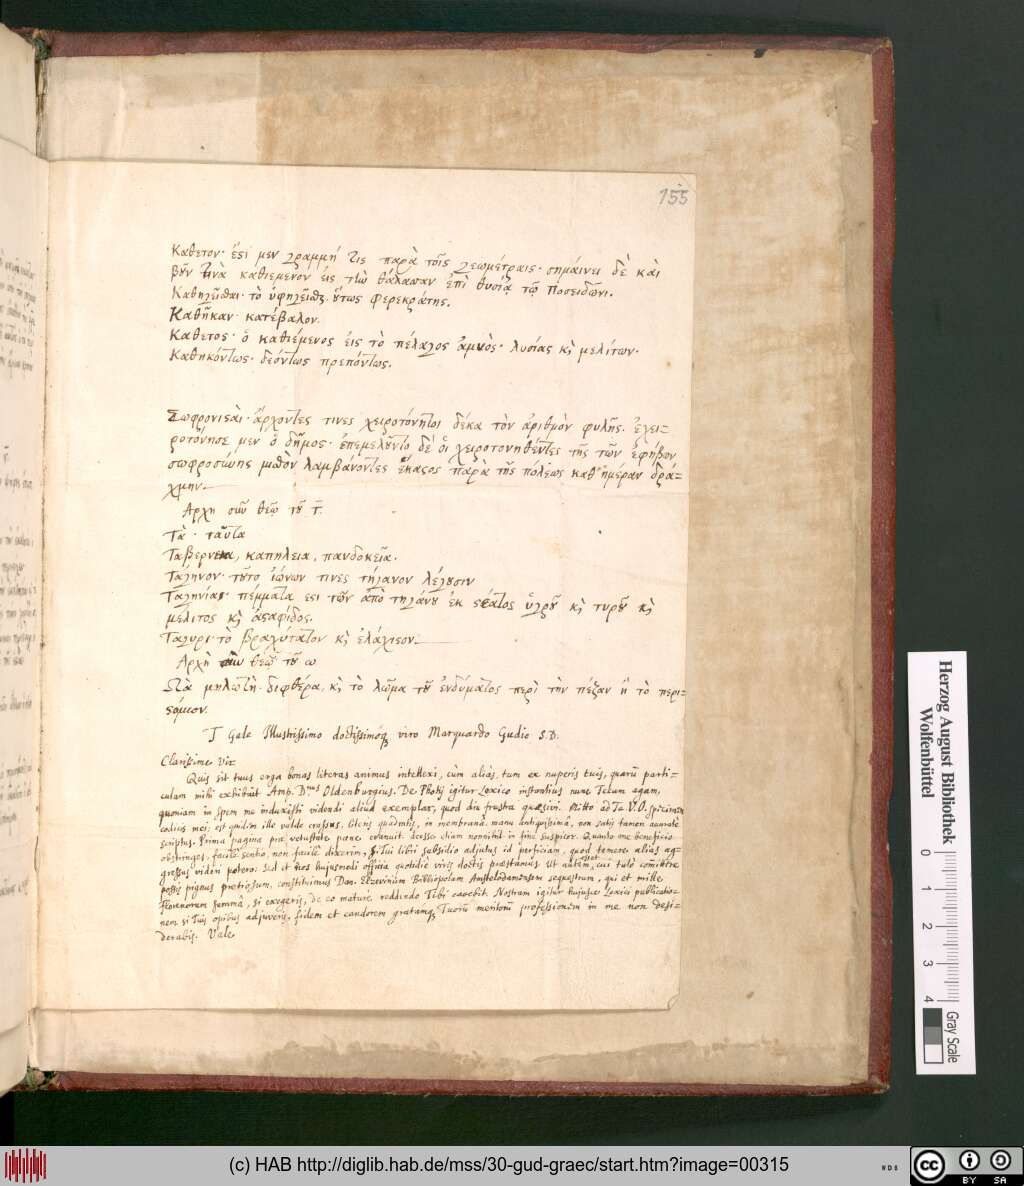 155
Κάθετον· ἐςὶ μεν γραμμή τις παρὰ τοῖς γεωμέτραις· σημαίνει δὲ καὶ
βοῦν τινὰ καθιεμενον εἰς τὴν θάλασσαν ἐπὶ θυσίᾳ τῷ Ποσειδῶνι.
Καθηγεῖσθαι· τὸ ὑφηγεῖσθ. οὕτως Φερεκράτης.
Καθῆκαν· κατέβαλον.
Κάθετος· ὁ καθιέμενος εἰς τὸ πέλαγος ἀμνὸς· λυσίας κỳ μελίτων.
Καθηκόντως· δεόντως πρεπόντως.
Σωφρονιςαὶ· ἄρχοντες τινες χειροτόνητοι δέκα τὸν ἀριθμὸν φυλῆς. ἐχει-
ροτόνησε μεν ὁ δῆμος· ἐπεμελοῦντο δὲ οἱ χειροτονηθέντες τῆς τῶν ἐφήβων
σωφροσύνης μισθὸν λαμβάνοντες ἕκαςος παρὰ τῆς πόλεως καθ' ἡμέραν δρα-
χμην.
Αρχη σὺν θεῷ τοῦ τ.
Τὰ· ταῦτα
Ταβερνεια, καπηλεια, πανδοκεῖα.
Ταγηνον· τοῦτο ἰώνων τινες τήγανον λέγουσιν
Ταγηνίας· πέμματα εςι τῶν ἀπὸ τηγάνου ἐκ ςέατος ὑγροῦ κỳ τυροῦ κỳ
μέλιτος κỳ ἀςαφίδος.
Ταγυρι· τὸ βραχύτατον κỳ ἐλάχιςον.
Αρχὴ σὺν θεῷ τοῦ ω
Ωιὰ μηλωτὴ. διφθέρα, κỳ τὸ λῶμα τοῦ ἐνδύματος περὶ τὴν πέζαν ἢ τὸ περι-
ςόμιον.
T Gale Illustrissimo doctissimoq; viro Marquardo Gudio S.D.
Clarissime Vir
Quis sit tuus erga bonas literas animus intellexi, cùm aliàs, tum ex nuperis tuis, quarũ parti-
culam mihi exhibuit Amp. Dnus Oldenburgius. De Photij igitur Lexico instantius nunc Tecum agam,
quoniam in spem me induxisti videndi aliud exemplar, quod diu frustra quæsivi. Mitto ad Te V.O. specimen
codicis mei. est quidem ille valde crassus. literis quadratis, in membranâ. manu antiquissimâ, non satis tamen accuratè
scriptus. Prima pagina præ vetustate pane evanuit. deesse etiam nonnihil in fine suspicor. Quanto me beneficio
obstringes, facile sentio, non facilè dixerim, si Tui libri subsidio adjutus id perficiam, quod temerè aliàs ag-
gressus videri potero: Sed et hos hujusmodi officia quotidiè viris doctis præstamus. Ut autem esset, cui tutò comittere
possis pignus pretiosum, constituimus Dan. Elzevirium Bibliopolam Amstelodamensem sequestrum, qui et mille
florenorum summâ, si exegeris, de eo maturè reddendo Tibi cavebit. Nostram igitur hujusce Lexici publicatio-
nem si Tuis opibus adjuveris, fidem et candorem gratamq; Tuorũ meritorũ professionem in me non desi-
derabis. Vale.
Herzog August Bibliothek
Wolfenbüttel
0
1
2
3
4
Gray Scale
(c) HAB http://diglib.hab.de/mss/30-gud-graec/start.htm?image=00315
WDB
cc
BY SA